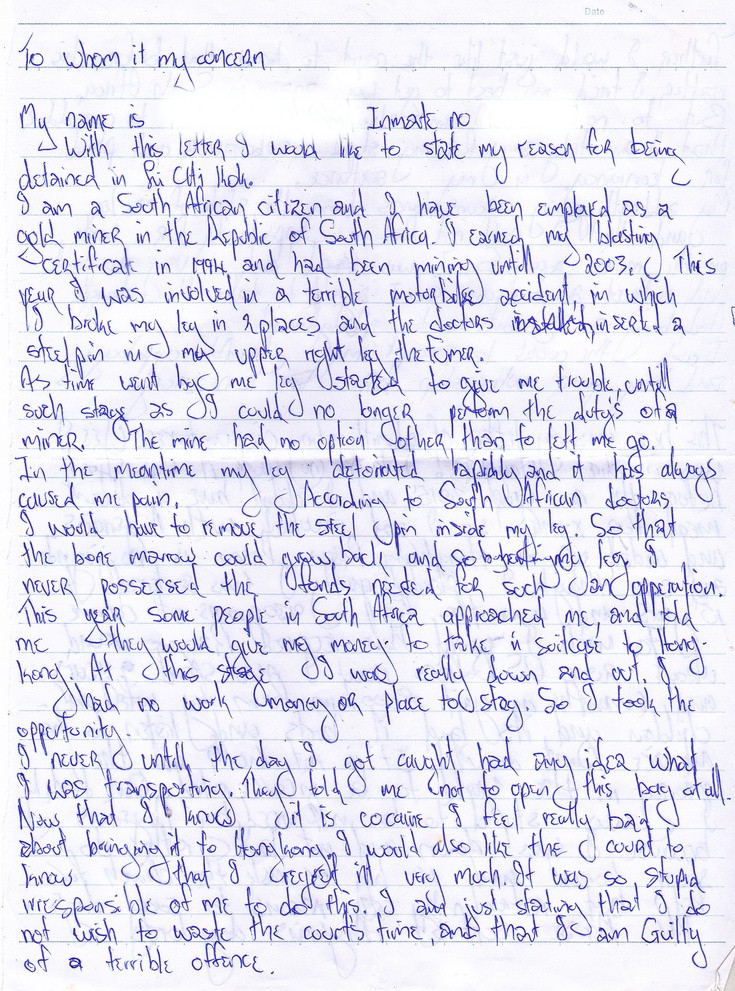 Date
To whom it my concern
My name is Inmate no
With this letter I would like to state my reason for being
detained in
I am a South African citizen and I have been employed as a
gold miner in the Republic of South Africa. I earned my blasting
certificate in 1994, and had been mining untill 2003. This
year I was involved in a terrible motorbike accident, in which
I broke my leg in 2 places and the doctors inserted a
steel pin in my upper right leg the femer.
As time went by me leg started to give me trouble, untill
such stage as I could no longer perform the duty's of a
miner. The mine had no option other than to left me go.
In the meantime my leg detoriated rapidly and it has always
caused me pain. According to South African doctors
I would have to remove the steel pin inside my leg. So that
the bone marrow could grow back, and so my leg. I
never possessed the fonds needed for such an opperation.
This year some people in South Africa approached me, and told
me they would give me money to take 'n suitcase to Hong-
kong. At this stage I was really down and out. I
had no work money or place to stay. So I took the
opportunity.
I never untill the day I got caught had any idea what
I was transporting. They told me not to open this bag at all.
Now that I know it is cocaine I feel really bad
about bringing it to Hongkong. I would also like the court to
know that I regret it very much. It was so stupid
irresponsible of me to do this. I am just stating that I do
not wish to waste the courts time, and that I am Guilty
of a terrible offence.